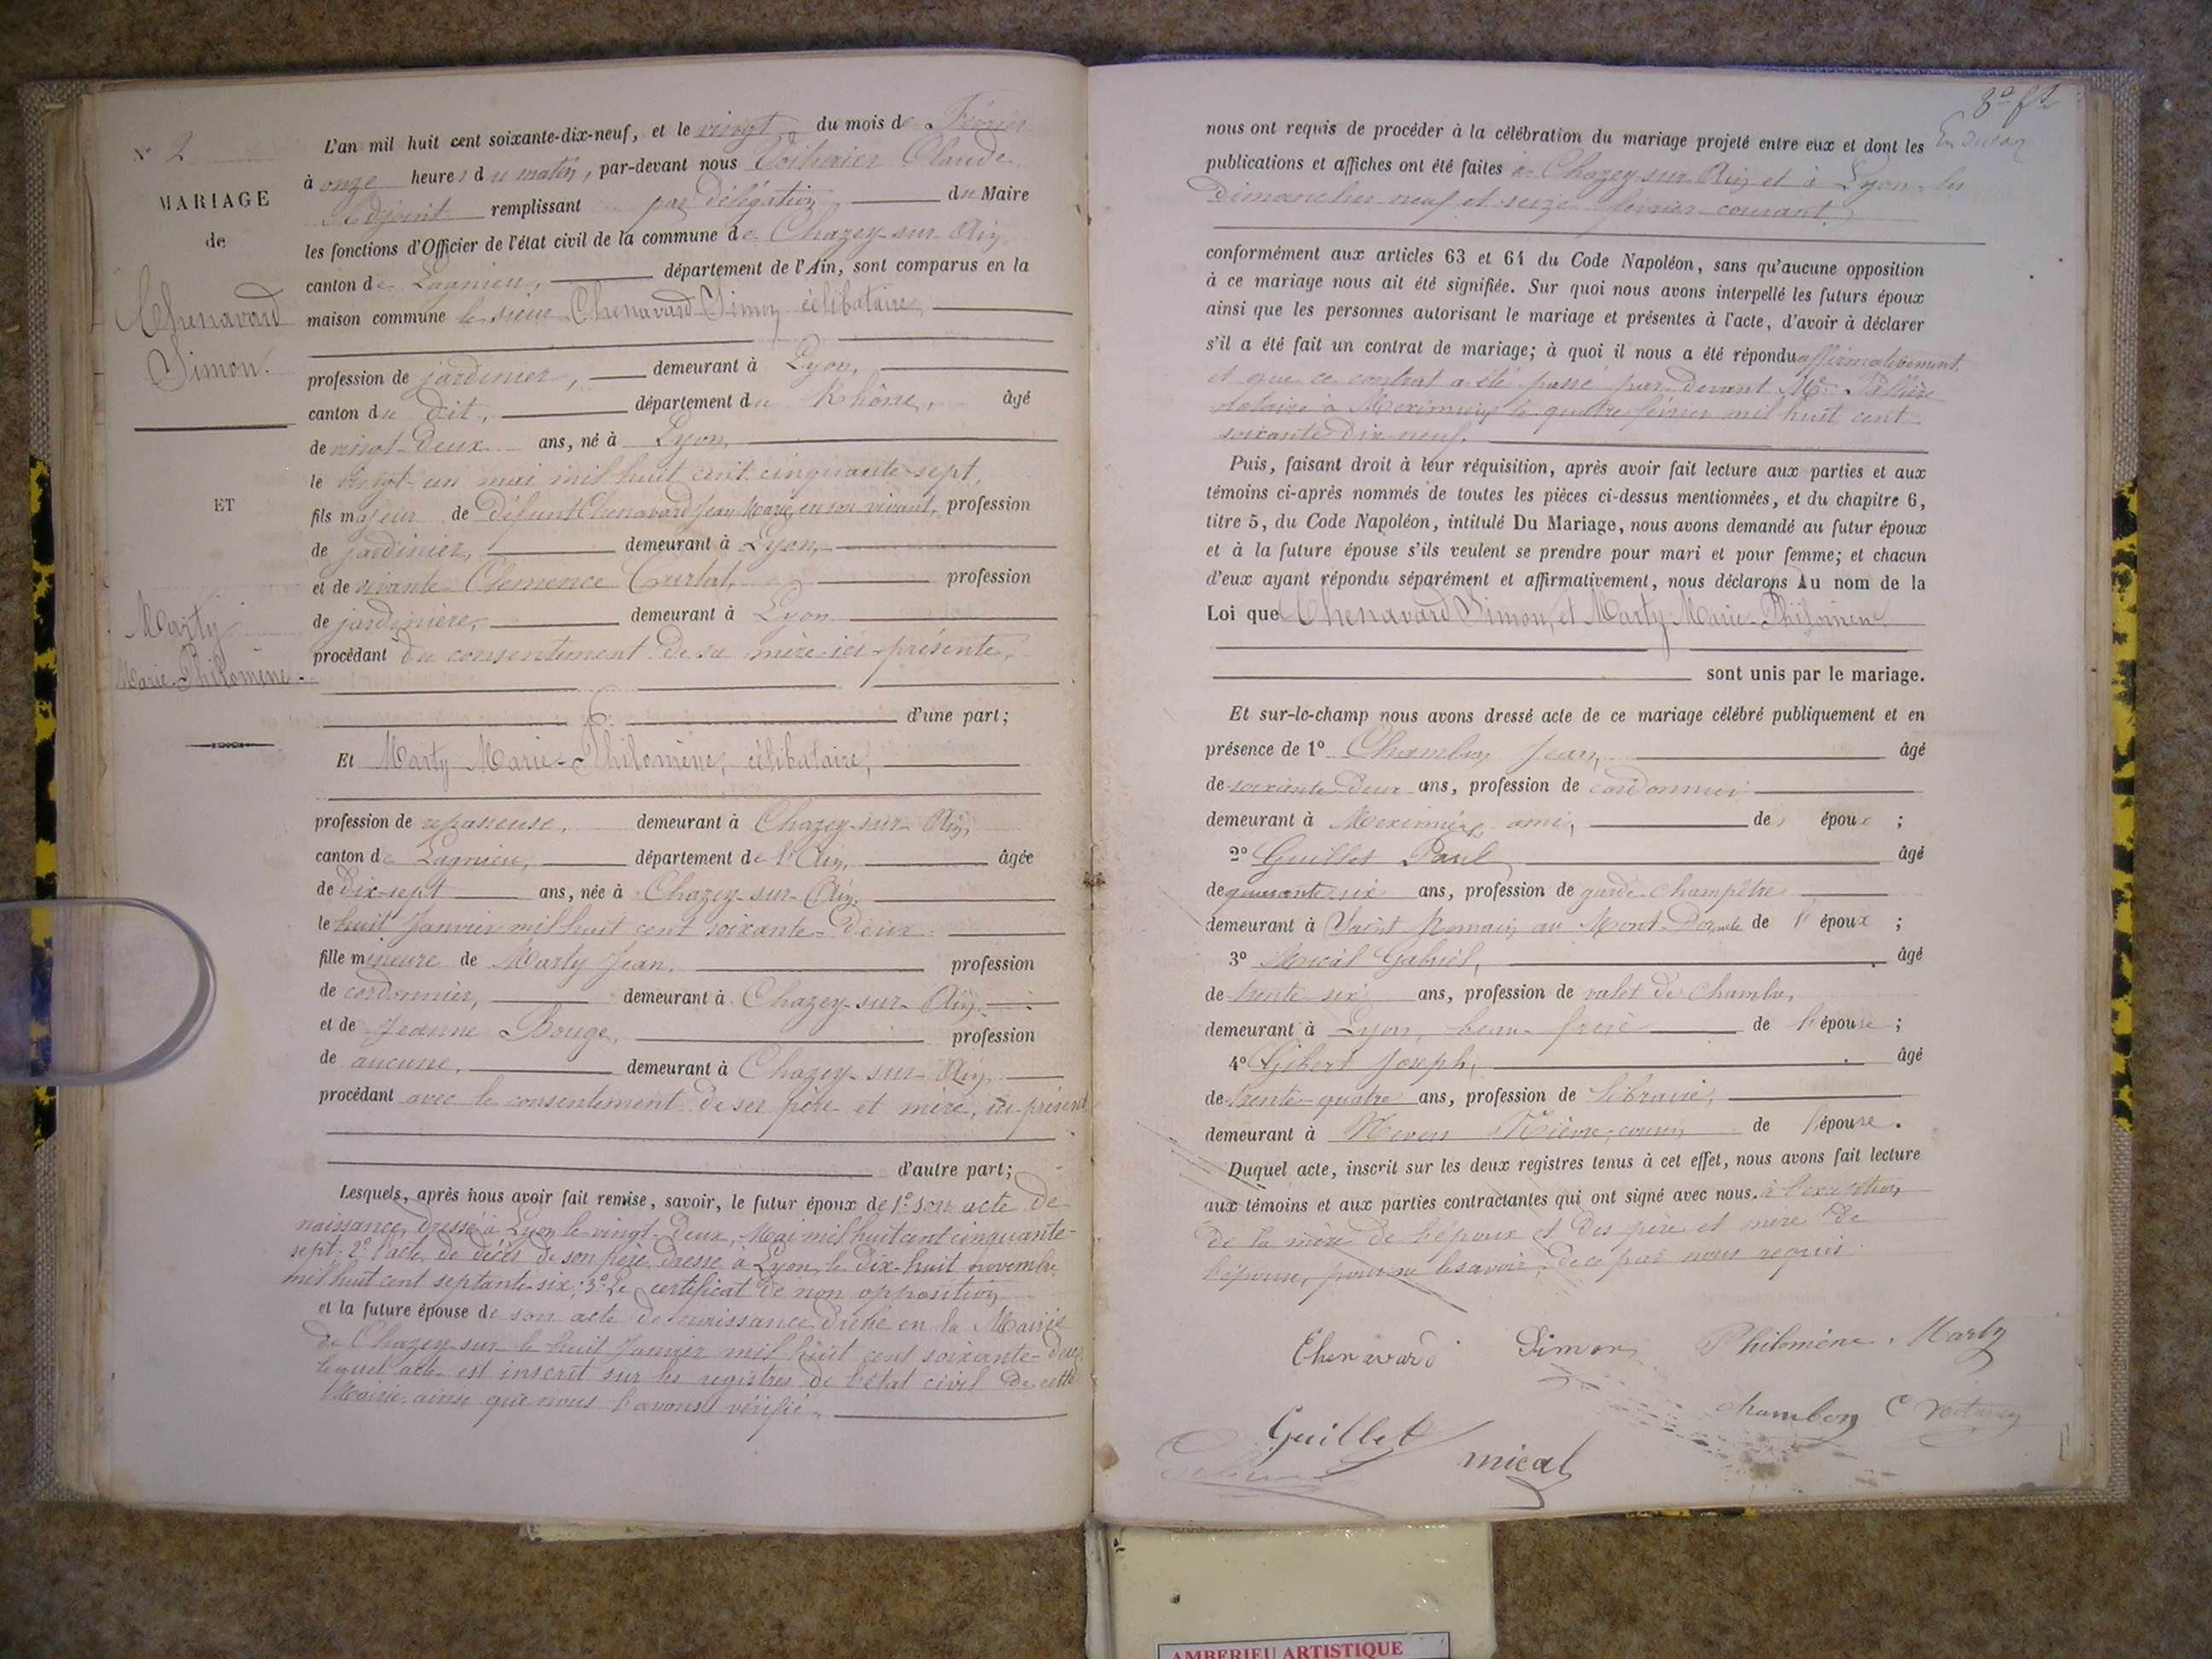 N° 2
MARIAGE
de
Chenavard
Simon.
ET
Marty
Marie-Philomène.
L'an mil huit cent soixante-dix-neuf, et le vingt du mois de Février
à onze heures du matin, par-devant nous Voiturier Claude,
Adjoint remplissant par délégation du Maire
les fonctions d'Officier de l'état civil de la commune de Chazey-sur-Ain,
canton de Lagnieu, département de l'Ain, sont comparus en la
maison commune le sieur Chenavard Simon, célibataire,
profession de jardinier, demeurant à Lyon,
canton du dit, département du Rhône, âgé
de vingt-deux ans, né à Lyon,
le vingt-un mai mil huit cent cinquante-sept,
fils majeur de Défunt Chenavard Jean Marie, en son vivant, profession
de jardinier, demeurant à Lyon,
et de vivante Clemence Curtat, profession
de jardinière, demeurant à Lyon
procédant du consentement de sa mère ici présente,
d'une part;
Et Marty Marie-Philomène, célibataire,
profession de repasseuse, demeurant à Chazey-sur-Ain,
canton de Lagnieu, département de l'Ain, âgée
de dix-sept ans, née à Chazey-sur-Ain,
le huit Janvier mil huit cent soixante-deux
fille mineure de Marty Jean, profession
de cordonnier, demeurant à Chazey-sur-Ain,
et de Jeanne Bouge, profession
de aucune, demeurant à Chazey-sur-Ain,
procédant avec le consentement de ses père et mère, ici présent
d'autre part;
Lesquels, après nous avoir fait remise, savoir, le futur époux de 1° son acte de
naissance, dressé à Lyon le vingt-deux, Mai mil huit cent cinquante-
sept; 2° l'acte de décès de son père dressé à Lyon, le dix-huit novembre
mil huit cent septante-six; 3° Le certificat de non opposition
et la future épouse de son acte de naissance en la Mairie
de Chazey-sur le huit Janvier mil huit cent soixante-deux
lequel acte est inscrit sur les registres de l'état civil de cette
Mairie, ainsi que nous l'avons vérifié,
nous ont requis de procéder à la célébration du mariage projeté entre eux et dont les
publications et affiches ont été faites à Chazey-sur-Ain et à Lyon les
dimanches neuf et seize février courant,
conformément aux articles 63 et 64 du Code Napoléon, sans qu'aucune opposition
à ce mariage nous ait été signifiée. Sur quoi nous avons interpellé les futurs époux
ainsi que les personnes autorisant le mariage et présentes à l'acte, d'avoir à déclarer
s'il a été fait un contrat de mariage; à quoi il nous a été répondu affirmativement,
et que ce contrat a été passé par devant Me
notaire à Meximieux le quatre février mil huit cent
soixante-dix-neuf.
Puis, faisant droit à leur réquisition, après avoir fait lecture aux parties et aux
témoins ci-après nommés de toutes les pièces ci-dessus mentionnées, et du chapitre 6,
titre 5, du Code Napoléon, intitulé Du Mariage, nous avons demandé au futur époux
et à la future épouse s'ils veulent se prendre pour mari et pour femme; et chacun
d'eux ayant répondu séparément et affirmativement, nous déclarons Au nom de la
Loi que Chenavard Simon, et Marty Marie-Philomène
sont unis par le mariage.
Et sur-le-champ nous avons dressé acte de ce mariage célébré publiquement et en
présence de 1° Chambon Jean, âgé
de soixante-deux ans, profession de cordonnier
demeurant à Meximieux, ami, de époux ;
2° Guillet Paul âgé
de quarante six ans, profession de garde-champêtre
demeurant à Saint Romain au Mont-d'or, de l'époux ;
3° Mical Gabriel, âgé
de trente six ans, profession de valet de chambre,
demeurant à Lyon, beau-frère de l'épouse ;
4° Gibert Joseph, âgé
de trente-quatre ans, profession de libraire,
demeurant à Nevers Nièvre, cousin de l'épouse.
Duquel acte, inscrit sur les deux registres tenus à cet effet, nous avons fait lecture
aux témoins et aux parties contractantes qui ont signé avec nous. à l'exception
de la mère de l'époux et des père et mère de
l'épouse, pour ne le savoir, de ce par nous requis
Chenavard Simon Philomène Marty
chambon C Voiturier
Guillet mical
AMBERIEU ARTISTIQUE